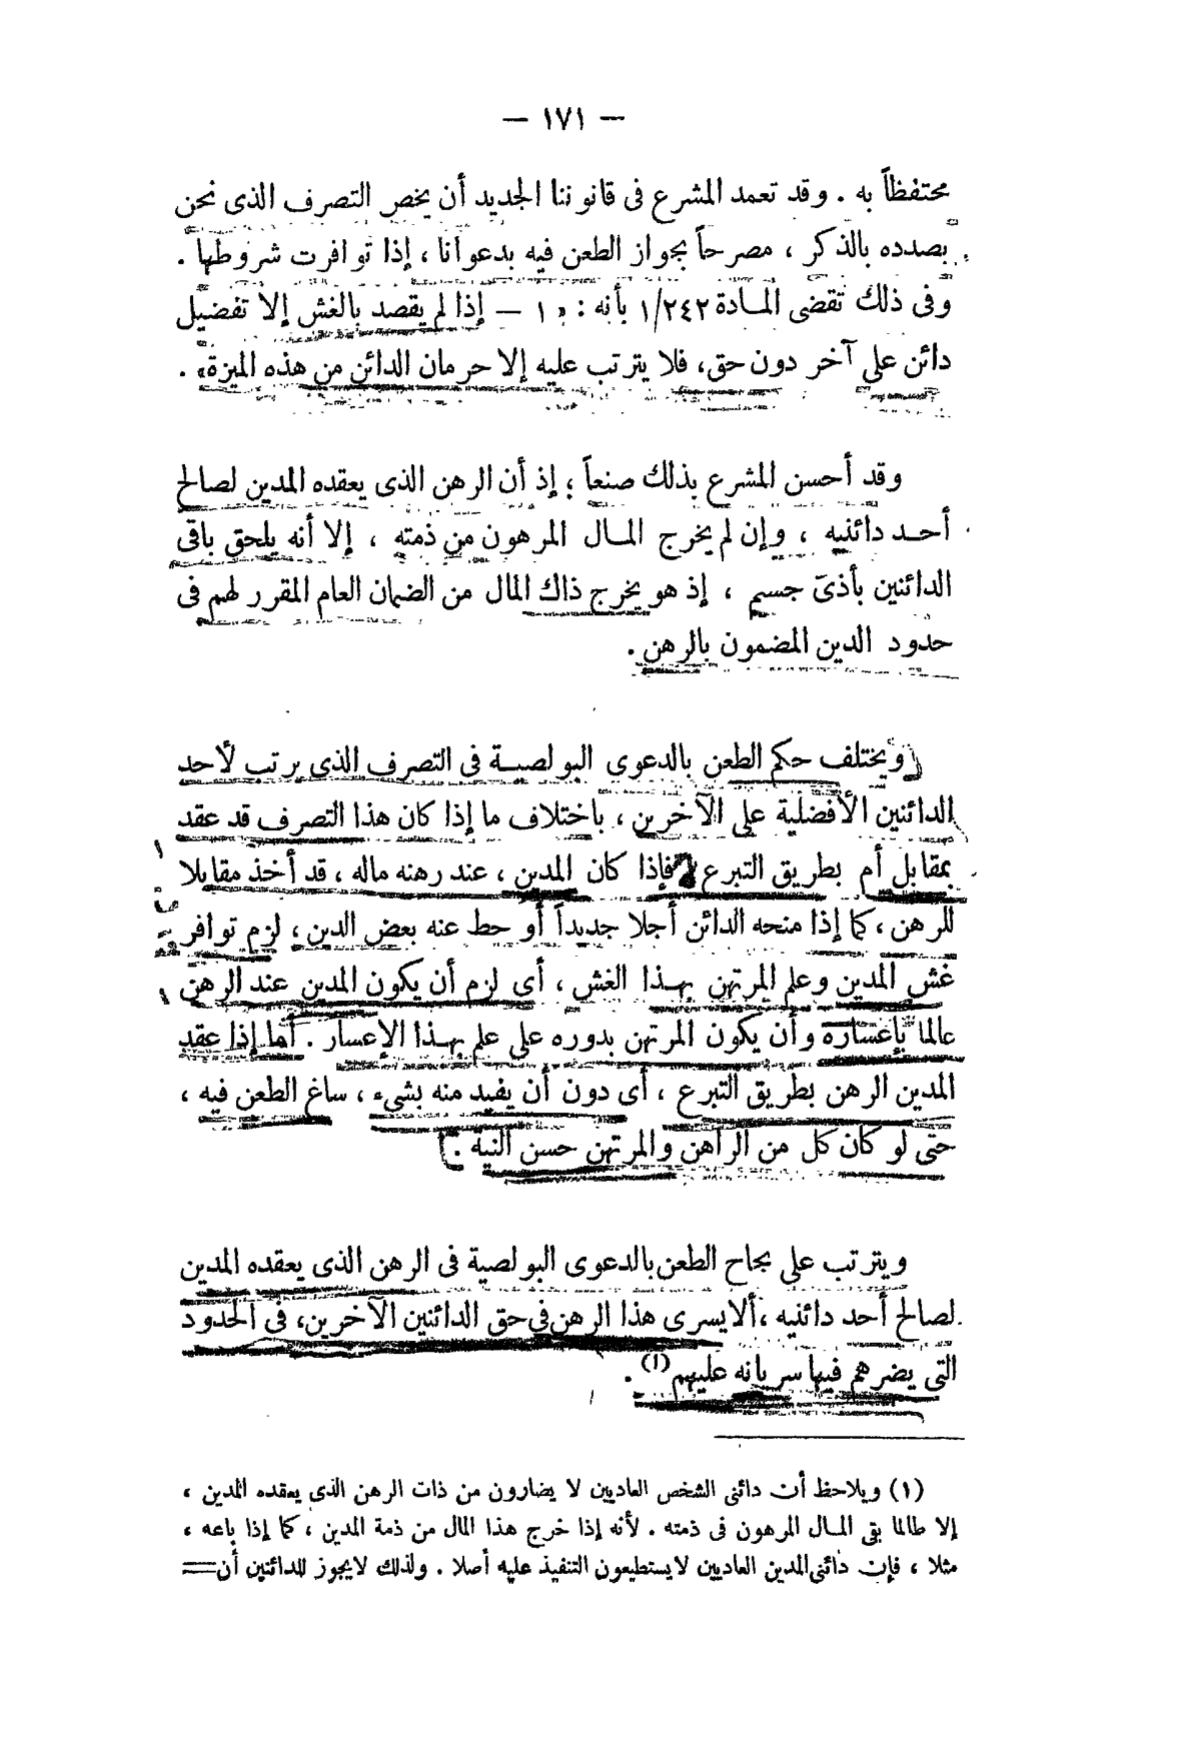 — ١٧١ —
محتفظاً به . وقد تعمد المشرع فى قانوننا الجديد أن يخص التصرف الذى نحن
بصدده بالذكر ، مصرحاً بجواز الطعن فيه بدعوانا ، إذا توافرت شروطها .
وفى ذلك تقضى المادة ١/٢٤٢ بأنه : « ١ — إذا لم يقصد بالغش إلا تفضيل
دائن على آخر دون حق، فلا يترتب عليه إلا حرمان الدائن من هذه الميزة» .
وقد أحسن المشرع بذلك صنعاً ؛ إذ أن الرهن الذى يعقده المدين لصالح
أحد دائنيه ، وإن لم يخرج المال المرهون من ذمته ، إلا أنه يلحق باقى
الدائنين بأذىً جسيم ، إذ هو يخرج ذاك المال من الضمان العام المقرر لهم فى
حدود الدين المضمون بالرهن .
ويختلف حكم الطعن بالدعوى البولصية فى التصرف الذى يرتب لأحد
الدائنين الأفضلية على الآخرين ، باختلاف ما إذا كان هذا التصرف قد عقد
بمقابل أم بطريق التبرع فإذا كان المدين ، عند رهنه ماله ، قد أخذ مقابلا
للرهن ، كما إذا منحه الدائن أجلا جديداً أو حط عنه بعض الدين ، لزم توافر
غش المدين وعلم المرتهن بهذا الغش ، أى لزم أن يكون المدين عند الرهن
عالما بإعساره وأن يكون المرتهن بدوره على علم بهذا الإعسار . أما إذا عقد
المدين الرهن بطريق التبرع ، أى دون أن يفيد منه بشىء ، ساغ الطعن فيه ،
حتى لو كان كل من الراهن والمرتهن حسن النية .
ويترتب على نجاح الطعن بالدعوى البولصية فى الرهن الذى يعقده المدين
لصالح أحد دائنيه ، ألا يسرى هذا الرهن فى حق الدائنين الآخرين، فى الحدود
التى يضرهم فيها سريانه عليهم (١) .
(١) ويلاحظ أن دائنى الشخص العاديين لا يضارون من ذات الرهن الذى يعقده المدين ،
إلا طالما بقى المال المرهون فى ذمته . لأنه إذا خرج هذا المال من ذمة المدين ، كما إذا باعه ،
مثلا ، فإن دائنى المدين العاديين لا يستطيعون التنفيذ عليه أصلا . ولذلك لا يجوز للدائنين أن =